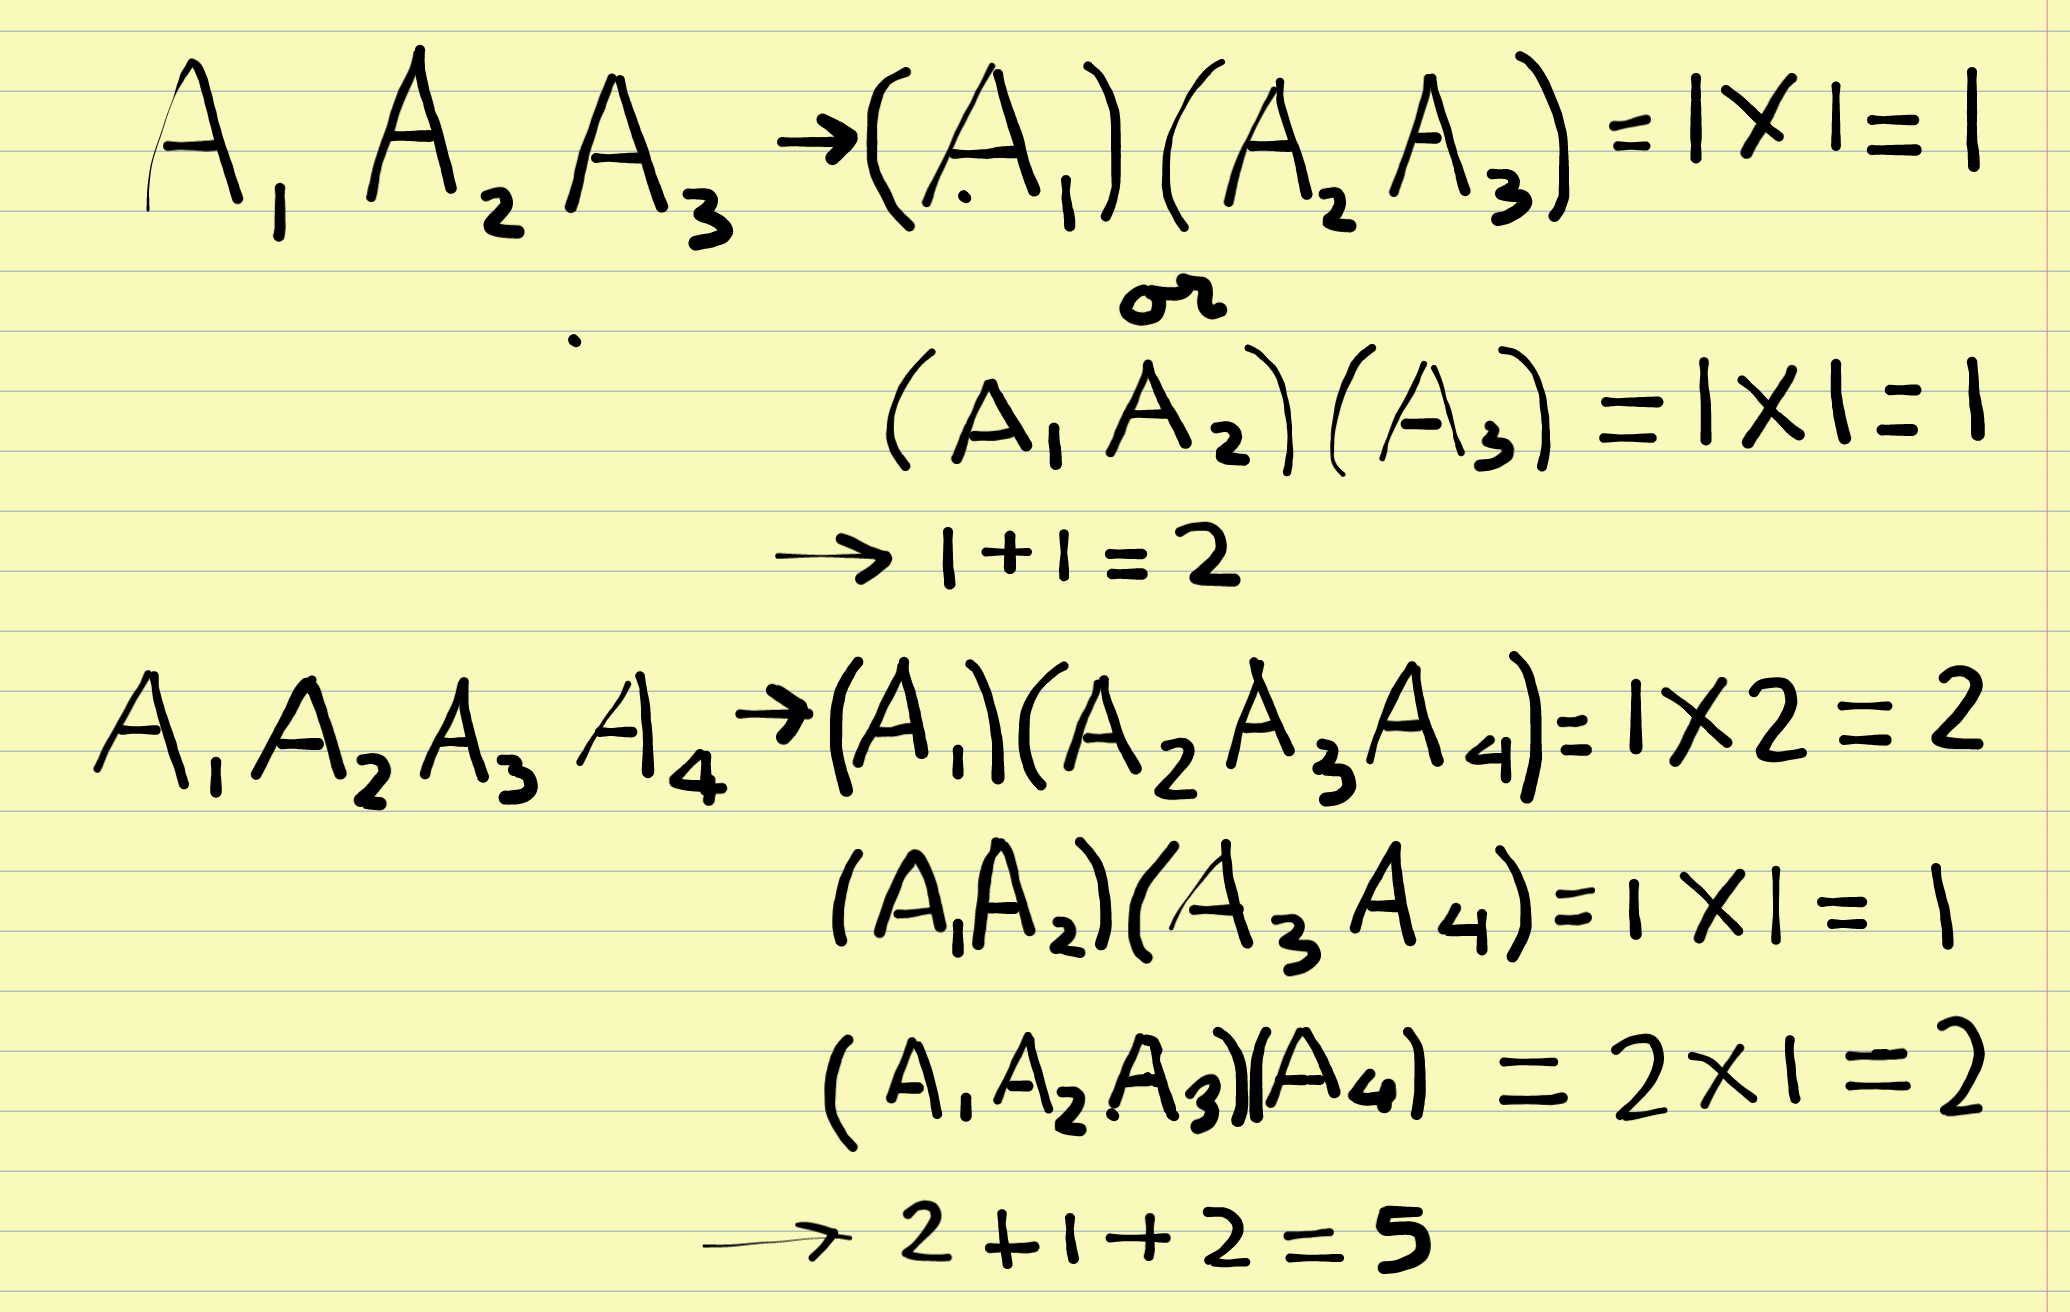 A₁ A₂ A₃ → (A₁)(A₂ A₃) = 1 × 1 = 1
or
(A₁ A₂)(A₃) = 1 × 1 = 1
→ 1 + 1 = 2
A₁ A₂ A₃ A₄ → (A₁)(A₂ A₃ A₄) = 1 × 2 = 2
(A₁ A₂)(A₃ A₄) = 1 × 1 = 1
(A₁ A₂ A₃)(A₄) = 2 × 1 = 2
→ 2 + 1 + 2 = 5